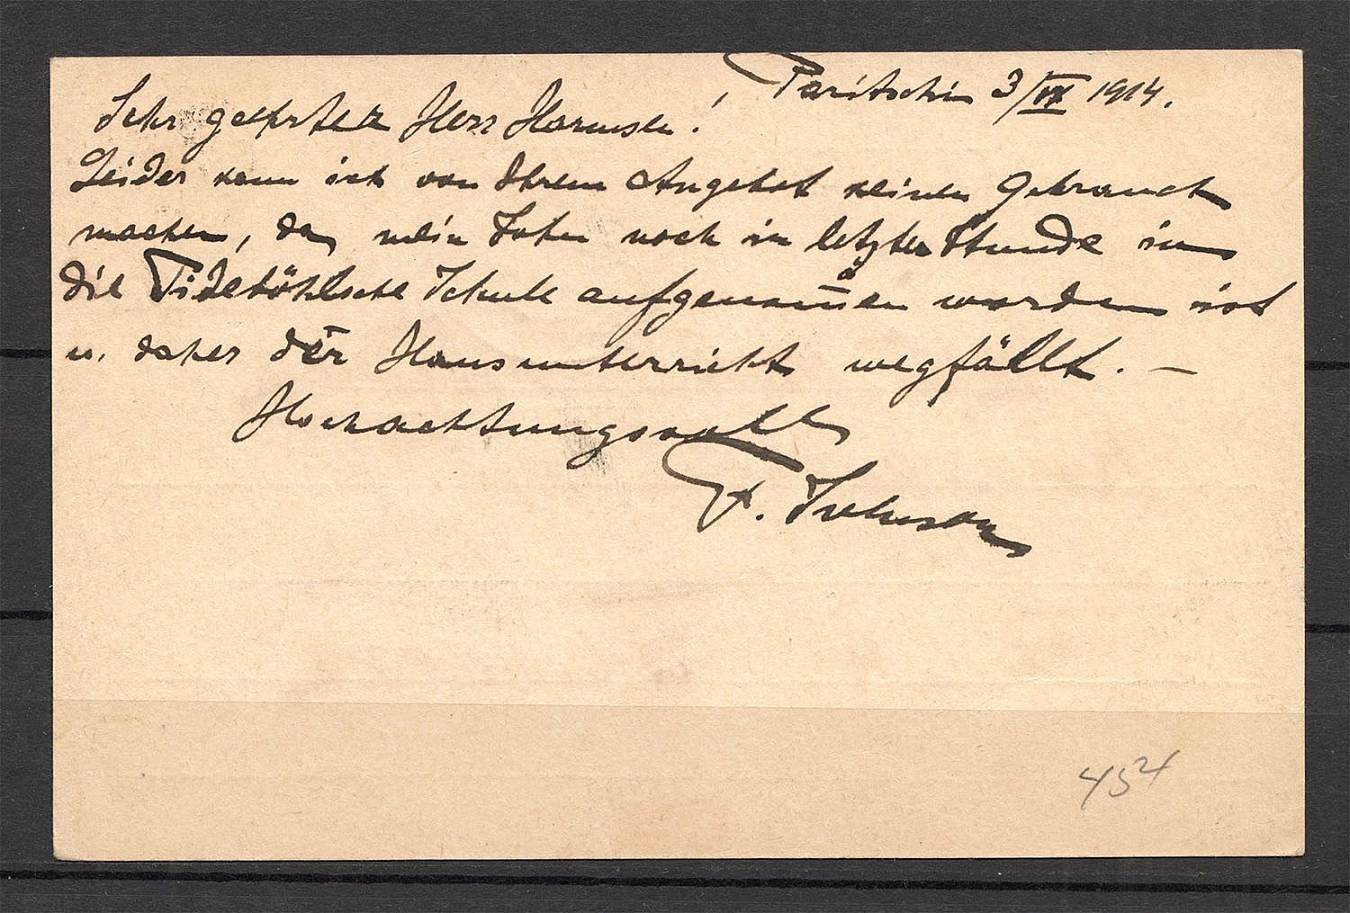 Paritschi 3/IX 1914.
Sehr geehrter Herr Harmsen!
Leider kann ich von Ihrem Angebot keinen Gebrauch
machen, da mein Sohn noch in letzter Stunde in
die Tideböhlsche Schule aufgenom̄en worden ist
u. daher der Hausunterricht wegfällt. —
Hochachtungsvoll
454